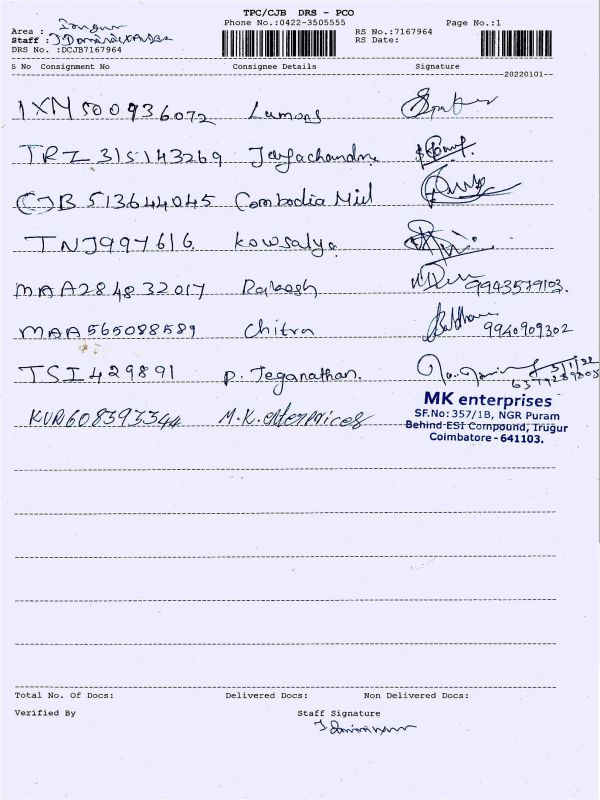 TPC/CJB DRS - PCO
Phone No.:0422-3505555
Page No.:1
Area : Irugur
Staff :
DRS No. :DCJB7167964
RS No.:7167964
RS Date:
S No Consignment No Consignee Details Signature
20220101
IXM500936072 Lumons
TRZ 315143269 Jayachandran
CJB 513644045 Combodia Mill
TNJ997616 Kowsalya
MAA284832017 Rakesh 9943579103.
MAA565088589 Chitra 9940909302
TSI429891 P. Jeganathan.
KUR608393344 M.K. enterprices
MK enterprises
SF.No: 357/1B, NGR Puram
Behind ESI Compound, Irugur
Coimbatore - 641103.
Total No. Of Docs: Delivered Docs: Non Delivered Docs:
Verified By Staff Signature